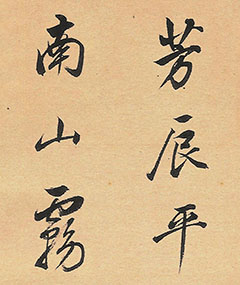 芳辰平
南山霧